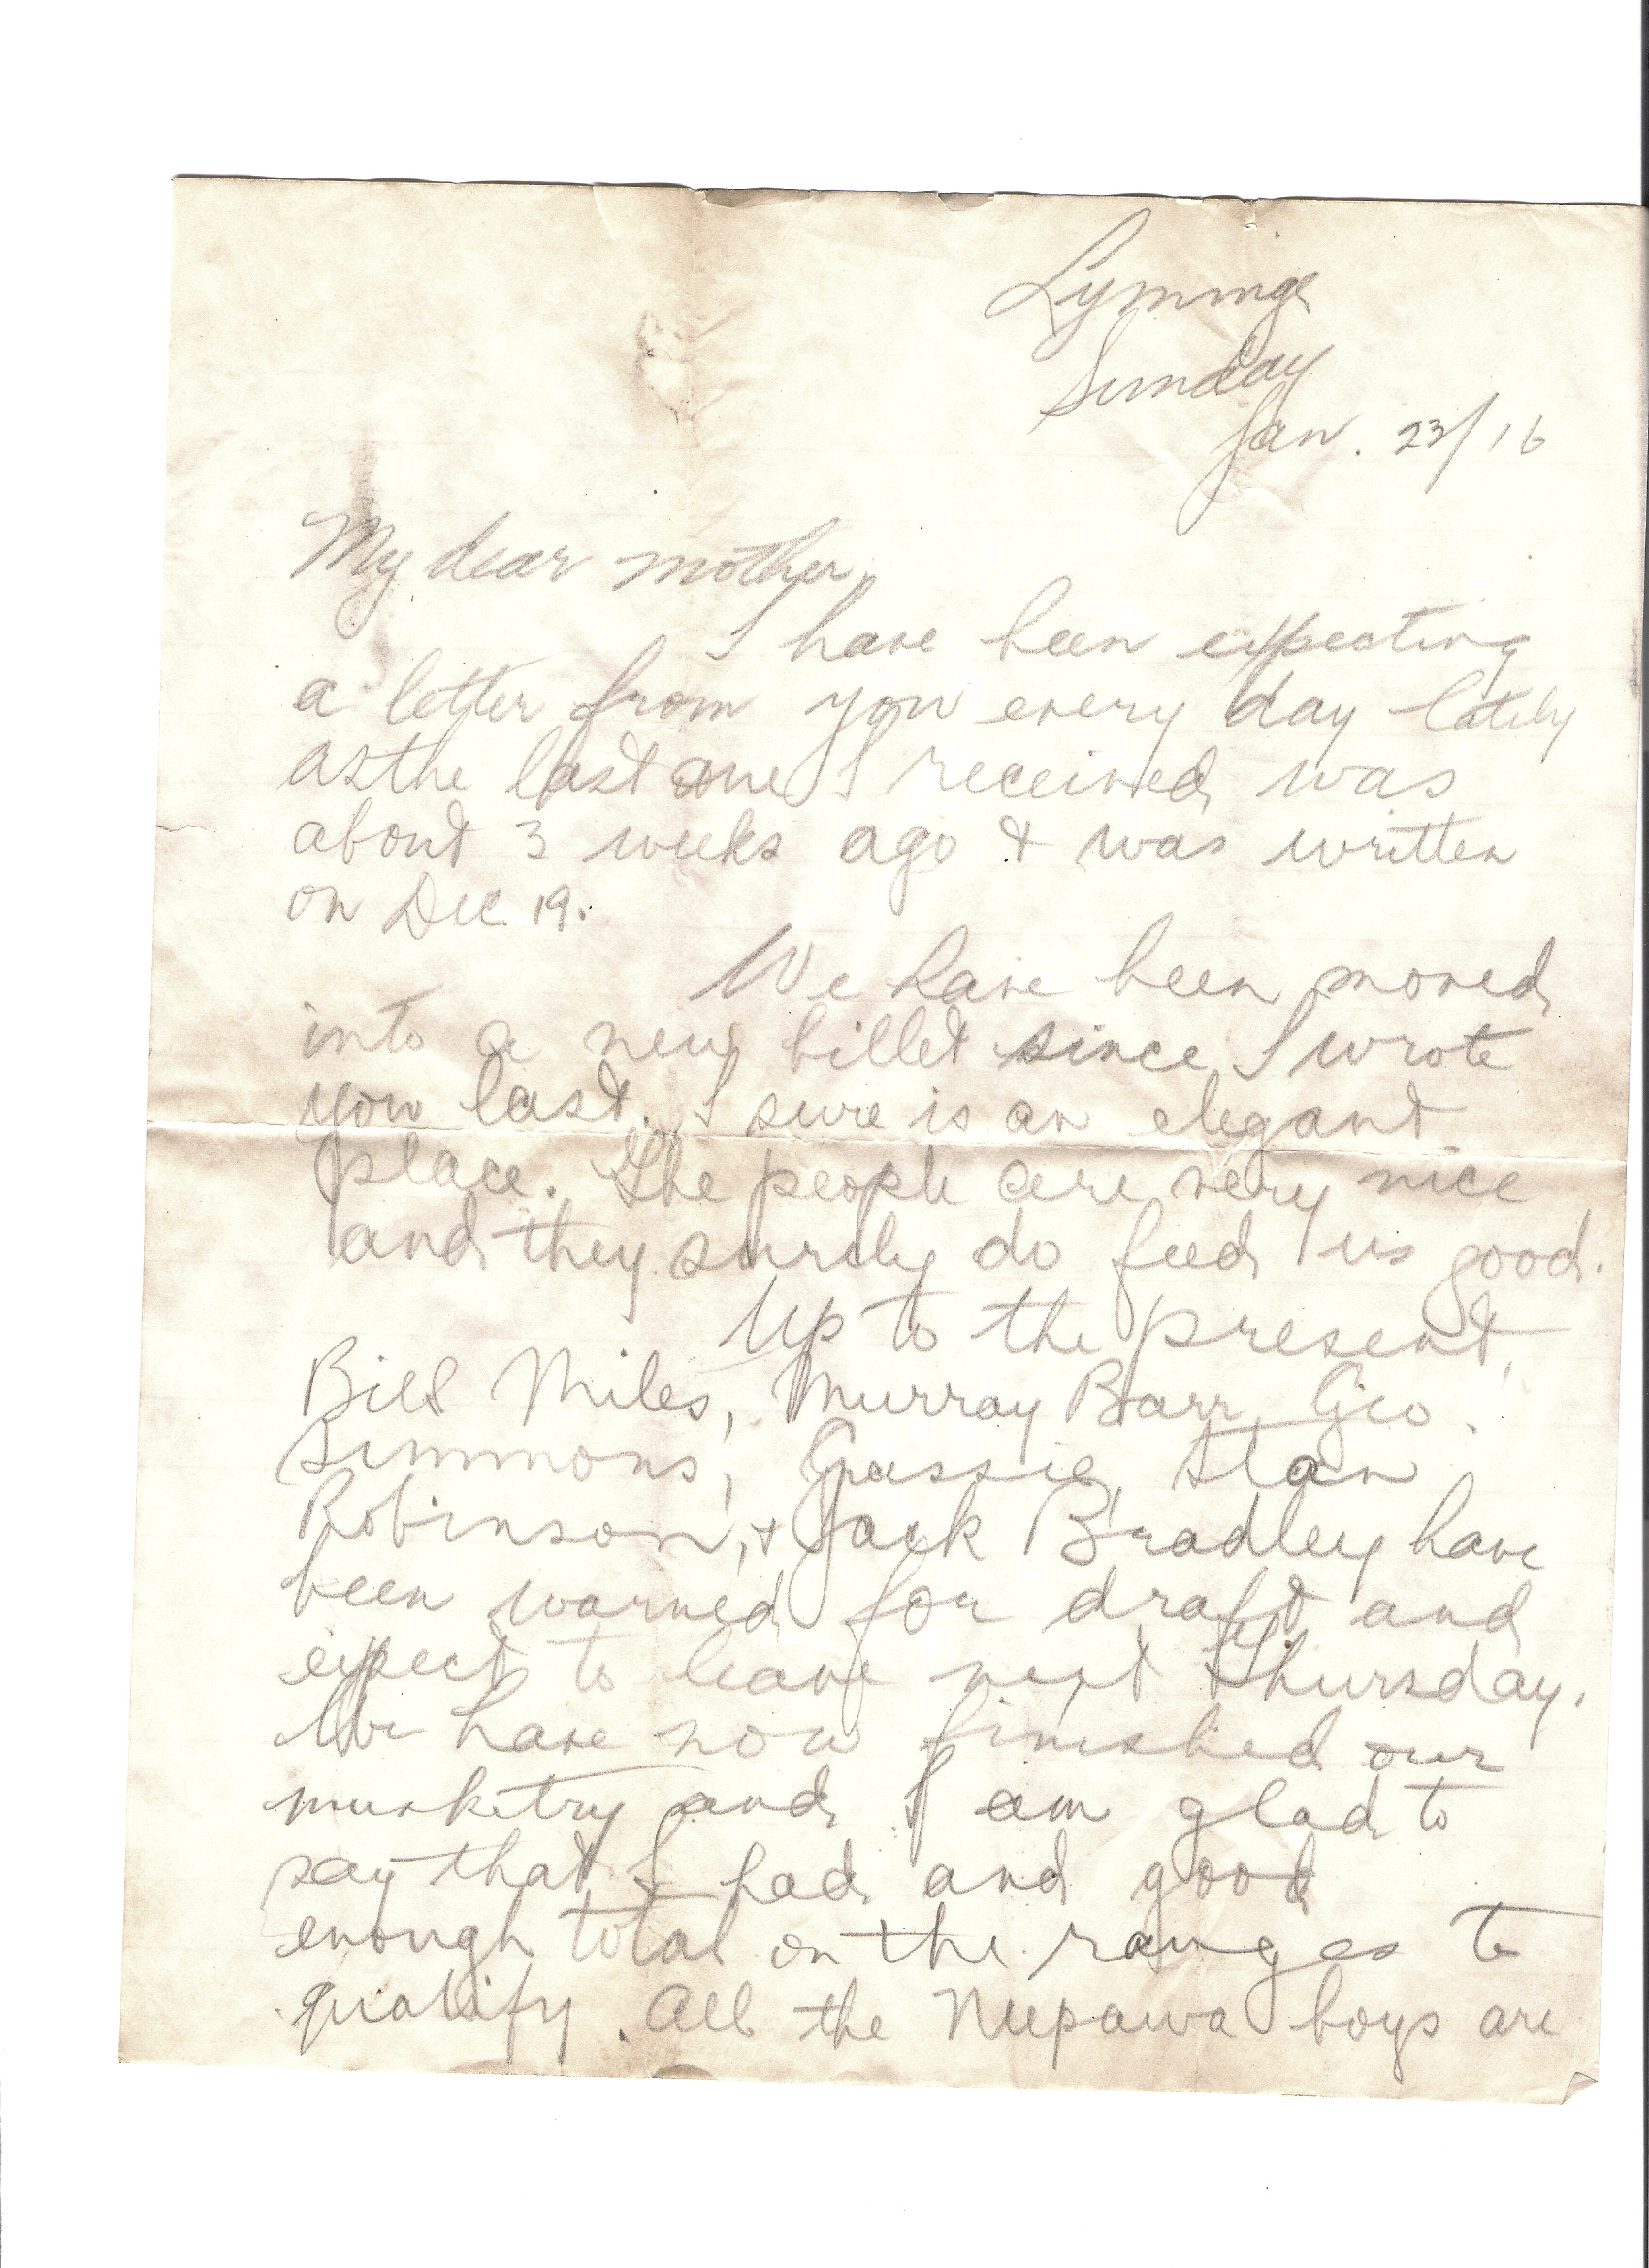 Lyminge
Sunday
Jan. 23/16
My dear mother,
I have been expecting
a letter from you every day lately
as the last one I received was
about 3 weeks ago & was written
on Dec 19.
We have been moved
into a new billet since I wrote
you last. I sure is an elegant
place. The people are very nice
and they surely do feed us good.
Up to the present,
Bill Miles, Murray Barr, Geo.
Simmons, Grassie, Stan
Robinson, & Jack Bradley have
been warned for draft and
expect to leave next Thursday.
We have now finished our
musketry and I am glad to
say that I had and good
enough total on the ranges to
qualify. All the Neepawa boys are